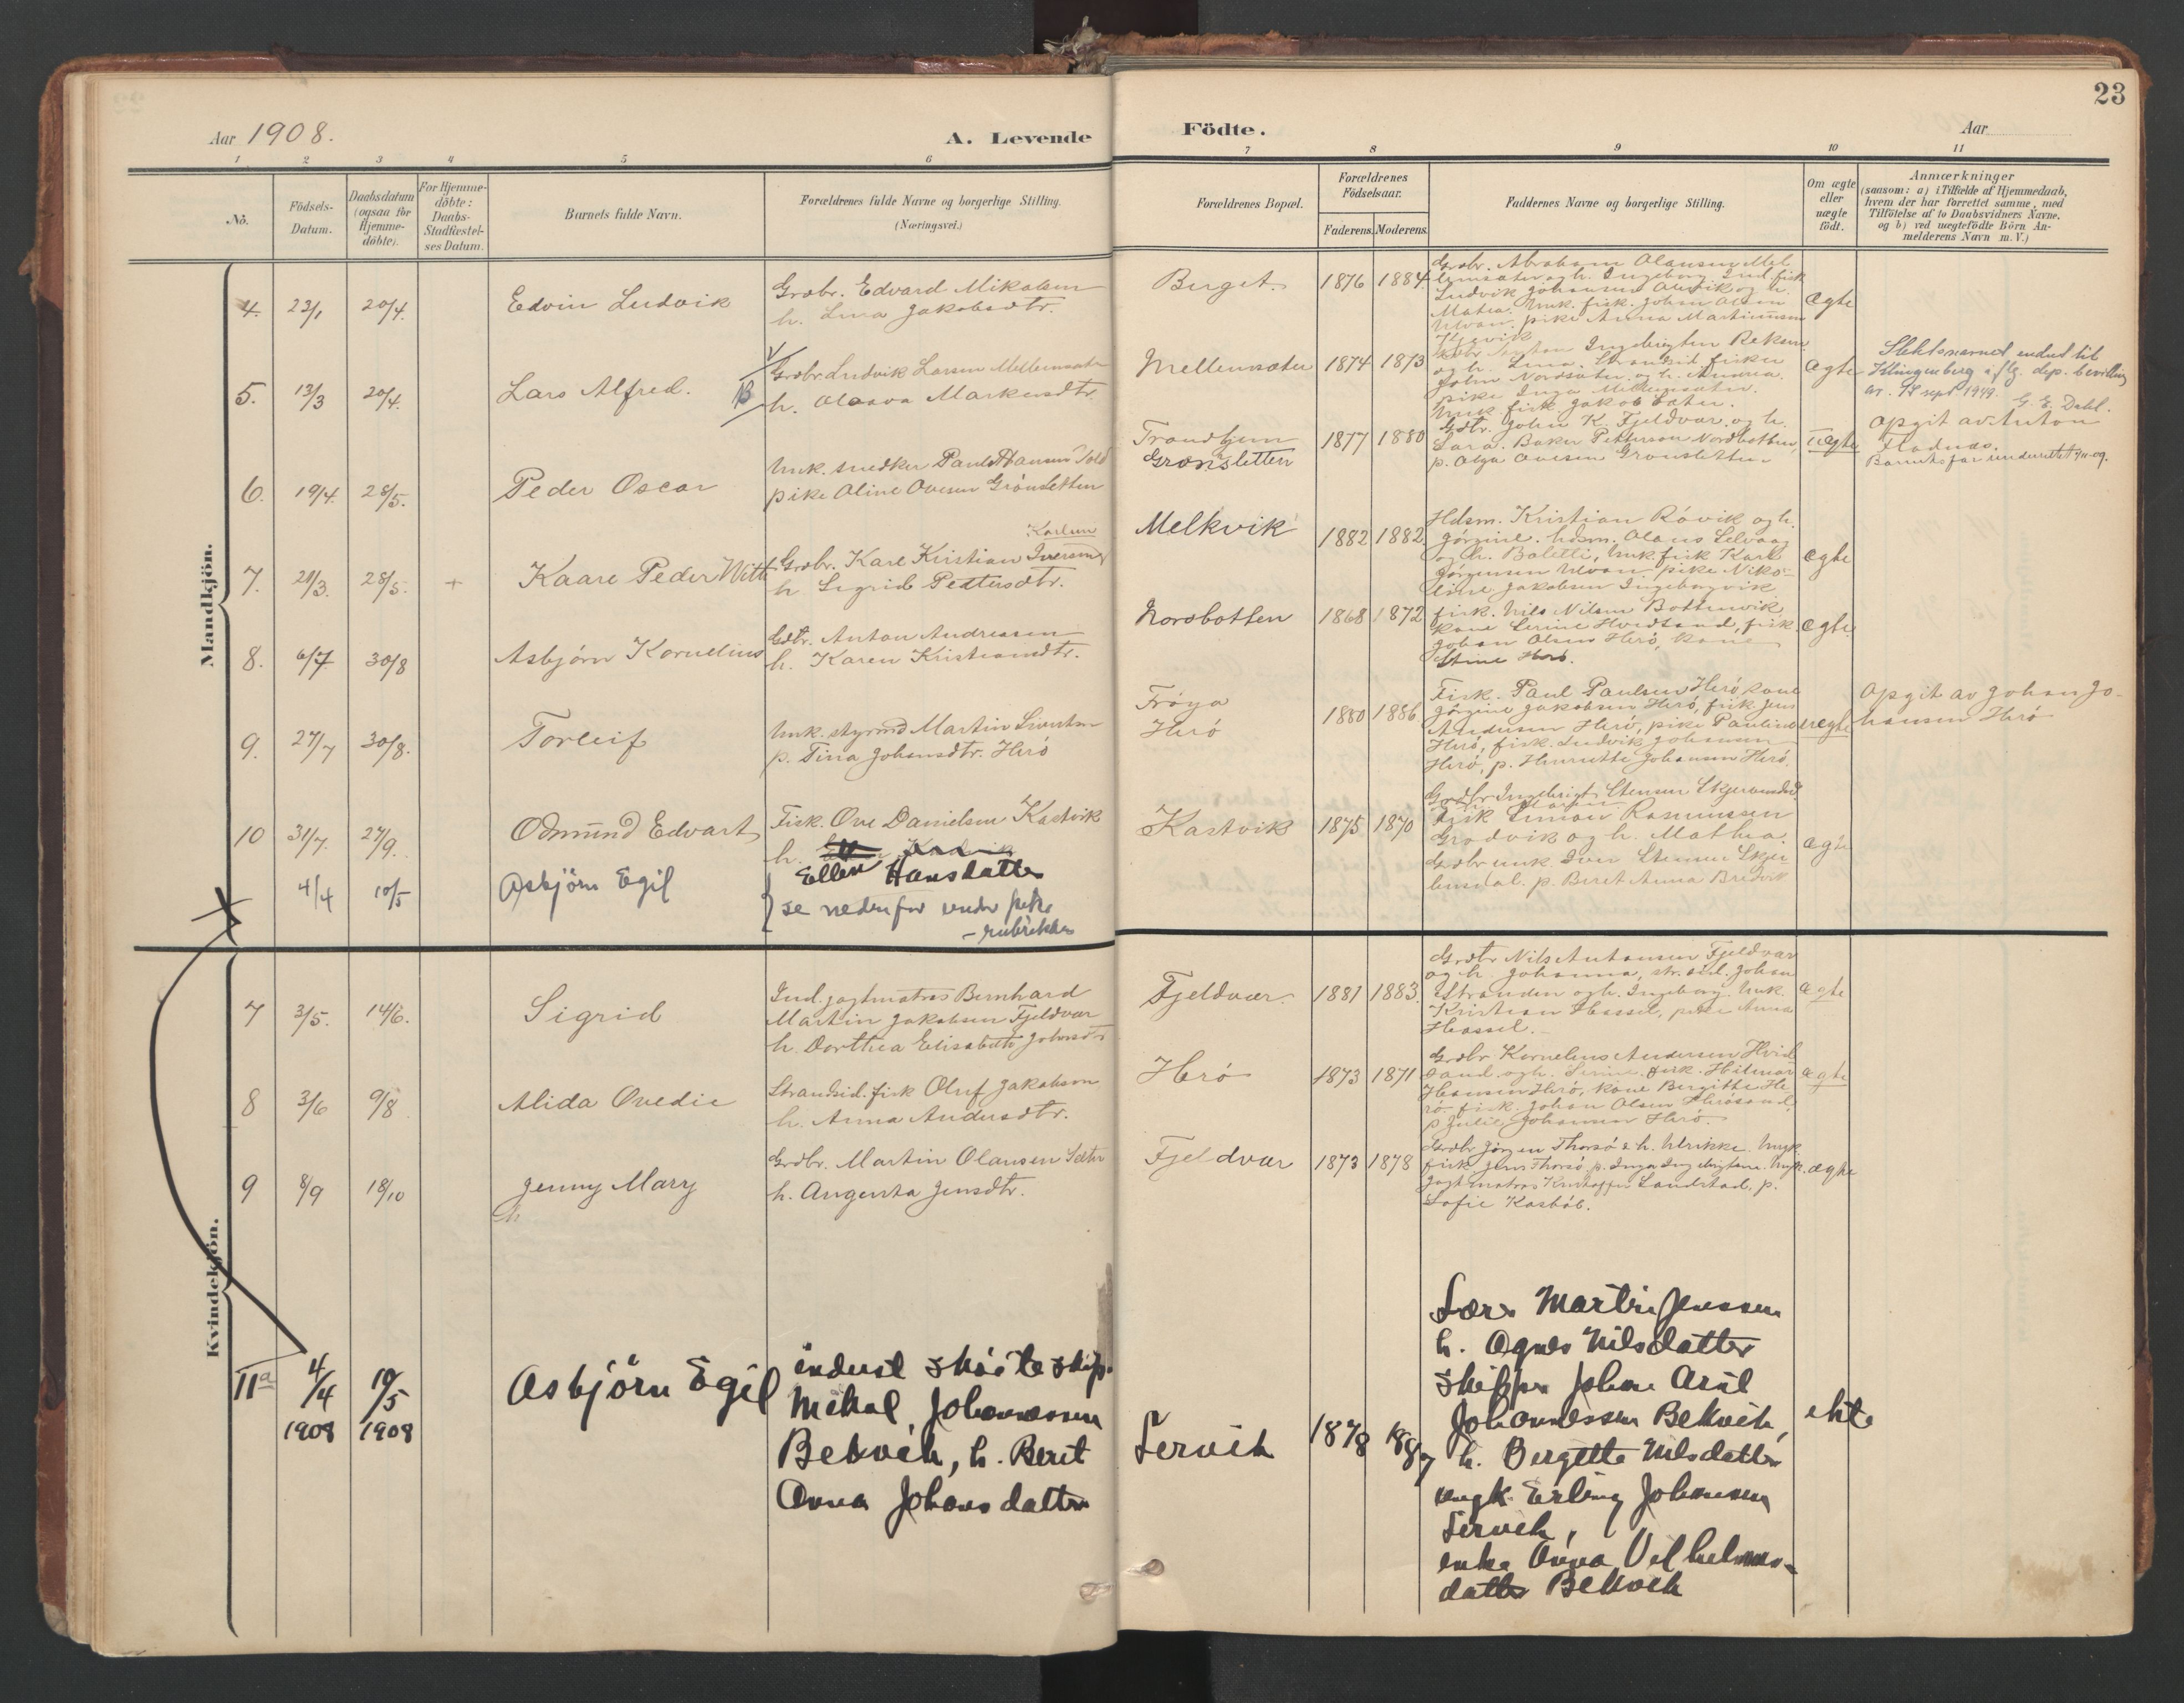 23
Aar 1908.
A. Levende
Födte.
Aar
1 2 3 4 5 6 7 8 9 10 11
No.
Födsels-
Datum.
Daabsdatum
(ogsaa for
Hjemme-
döbte).
For Hjemme-
döbte:
Daabs-
Stadfæstel-
ses Datum.
Barnets fulde Navn.
Forældrenes fulde Navne og borgerlige Stilling.
(Næringsvei.)
Forældrenes Bopæl.
Forældrenes
Födselsaar.
Faderens. Moderens.
Faddernes Navne og borgerlige Stilling.
Om ægte
eller
uægte
födt.
Anmærkninger
(saasom: a) i Tilfælde af Hjemmedaab,
hvem der har forrettet samme, med
Tilföielse af to Daabsvidners Navne.
og b) ved uægtefödte Börn An-
melderens Navn m. V.)
Mandkjön.
4. 23/1 20/4. Edvin Ludvik
Grdbr. Edvard Mikalsen
h. Lina Jakobsdtr.
Berget 1876 1884
Grdbr. Abraham Olausen Mel
lemsæter og h. Ingeborg
Ludvik Johansen og h.
Matea. Unk. fisk. Johan Olsen
Ulvan. pike Anna Martinussen
ægte
5. 13/3 20/4. Lars Alfred.
Grdbr. Ludvik Larsen Mellemsæter
h. Olaava Markusdtr.
Mellemsæter 1874 1873
Ingebrigtsen Reksen
og h. Lina. Strandsid. fisker
John Nordsæter og h. Amaria
pike Inga Mellemsæter.
Unk. fisk. Jakob Sæter.
ægte
Slektsnavnet endret til
Klingenberg iflg. dep. bevilling
av 17 sept 1949.
G. E. Dahl.
6. 19/4. 28/5. Peder Oscar
Unk. snedker Paul Hansen
pike Oline Ovesen Grönsletten
Trondhjem
Grønsletten
1877 1880
Gdbr. John K. Fjeldvær og h.
Sara. Baker Pettersen Nordbotten,
p. Olga Ovesen Grønsletten
uægte
Opgit av Anton
Flatnæs.
Barnets far underrettet
7. 29/3. 28/5. + Kaare Peder Witt
Karlsen
Grdbr. Karl Kristian Iversen
h Sigrid Pettersdtr.
Melkvik 1882 1882
Hdsm. Kristian Rövik og h.
Jörgine. hdsm. Olaus Selvaag
og h. Baletti, Unk. fisk Karl
Jörgensen Ulvan pike Niko-
line Jakobsen Ingeborgvik
ægte
8. 6/7 30/8 Asbjörn Kornelius
Gdbr. Anton Andreasen
h. Karen Kristiansdtr.
Nordbotten 1868 1872
fisk. Nils Nilsen Bottenvik
kone Serine Hvidsand, fisk.
Johan Olsen Herö, kone
Stine Herö.
ægte
9. 27/7 30/8. Torleif
Unk. styrmd Martin Sivertsen
p. Tina Johansdtr. Herö
Fröya
Herö
1880 1886
Fisk. Paul Paulsen Herö, kone
Jörgine Jakobsen Herö, fisk. Jens
Andersen Herö, pike Pauline
Herö, fisk. Ludvik Johansen
Herö, p. Henriette Johansen Herö.
uægte
Opgit av Johan Jo-
hansen Herö
10 31/7. 27/9. Odmund Edvart
Fisk. Ove Danielsen Kastvik
h.
Ellen Hansdatter
Kastvik 1875 1870
Grdbr. Ingebrigt Stensen
Fisk Simon Rasmussen
Grodvik og h. Mathea.
Grdbr. unk. Iver Stensen Skjer
p. Beret Anna Bredvik
ægte
4/4 10/5 Asbjörn Egil
se nedenfor under pike
-rubrikken
Kvindekjön.
7 3/5. 14/6. Sigrid
Ind. jagtmatros Bernhard
Martin Jakobsen Fjeldvær
h. Dorthea Elisabeth Johnsdtr
Fjeldvær. 1881 1883.
Grdbr Nils Antonsen Fjeldvær
og h. Johanna, str. sid. Johan
Stranden og h. Ingeborg. Unk.
Kristian Hassel, pike Anna
Hassel.
ægte
8 3/6 9/8 Alida Ovedie
Strandsid. fisk Oluf Jakobsen
h. Anna Andersdtr.
Herö 1873 1871
Grdbr Kornelius Andersen Hvid
sand og h. Serine, fisk. Hilmar
Hansen Herö, kone Bergitte He
rö. fisk. Johan Olsen Herösand,
p Julie Johansen Herö.
ægte
9 8/9 18/10 Jenny Mary
Grdbr. Martin Olausen Sæter
h. Augusta Jensdtr.
Fjeldvær 1873 1878
Grdbr Jörgen Thorsö & h. Ulrikke. Ungk.
fisk Jens Thorsö, p. Inga Ingebrigtsen. Ungk.
jagtmatros Kristoffer Sandstad, p.
Sofie Kasböl.
ægte
11a 4/4 1908 10/5 1908 Asbjörn Egil
inderst
Mikal Johannessen
Bekvik, h. Berit
Anna Johansdatter
Servik 1878 1887
Lærer Martin Jenssen
h. Agnes Nilsdatter
skipper Johan Arnt
Johannessen Bekvik,
h. Bergitte Nilsdatter
ungk. Erling Johansen
Servik,
enke Anna Vilhelms-
datter Bekvik
ekte